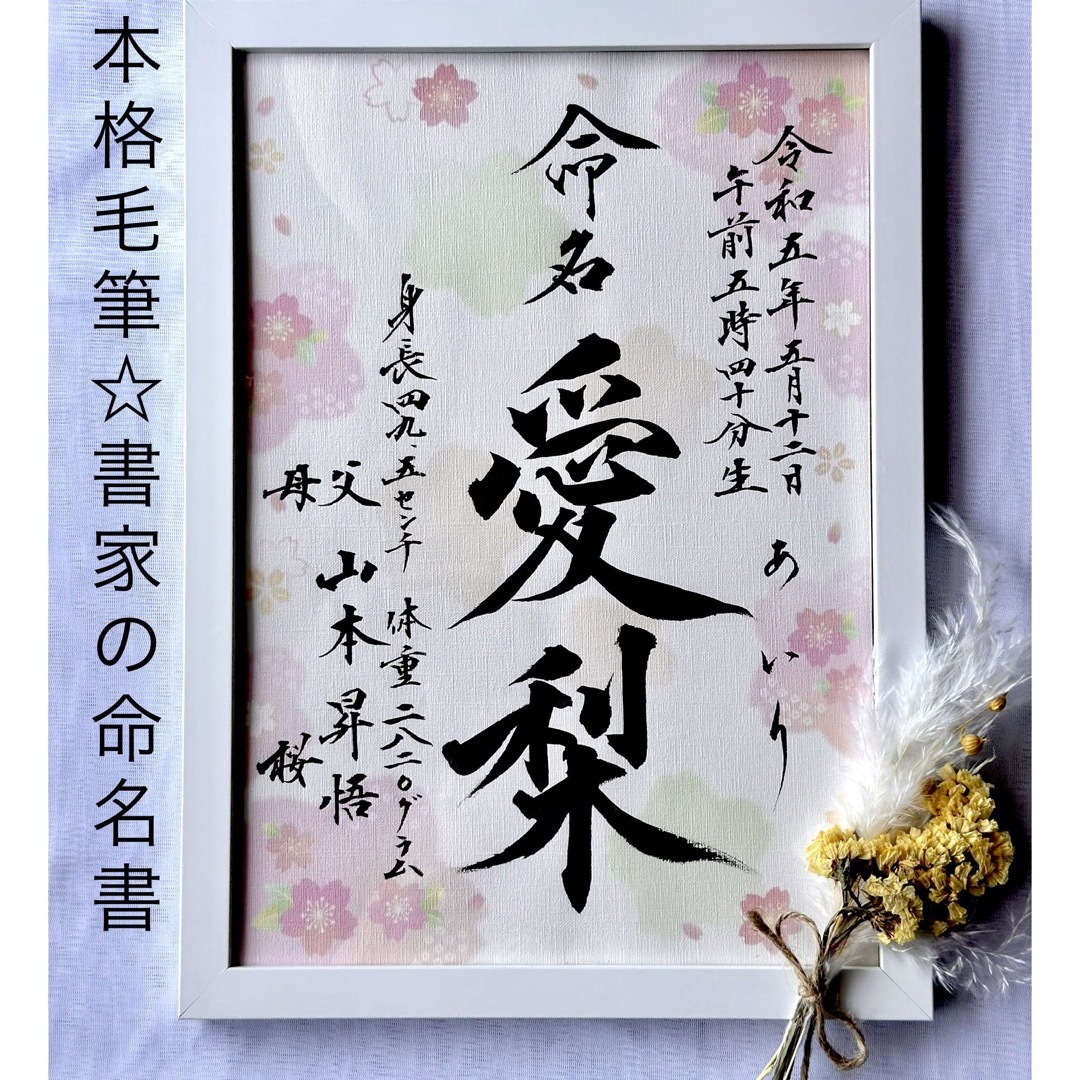 本格毛筆☆書家の命名書
令和五年五月十二日
午前五時四十分生
あいり
命名
愛梨
身長四九.五センチ 体重二八二〇グラム
父 山本昇悟
母 桜